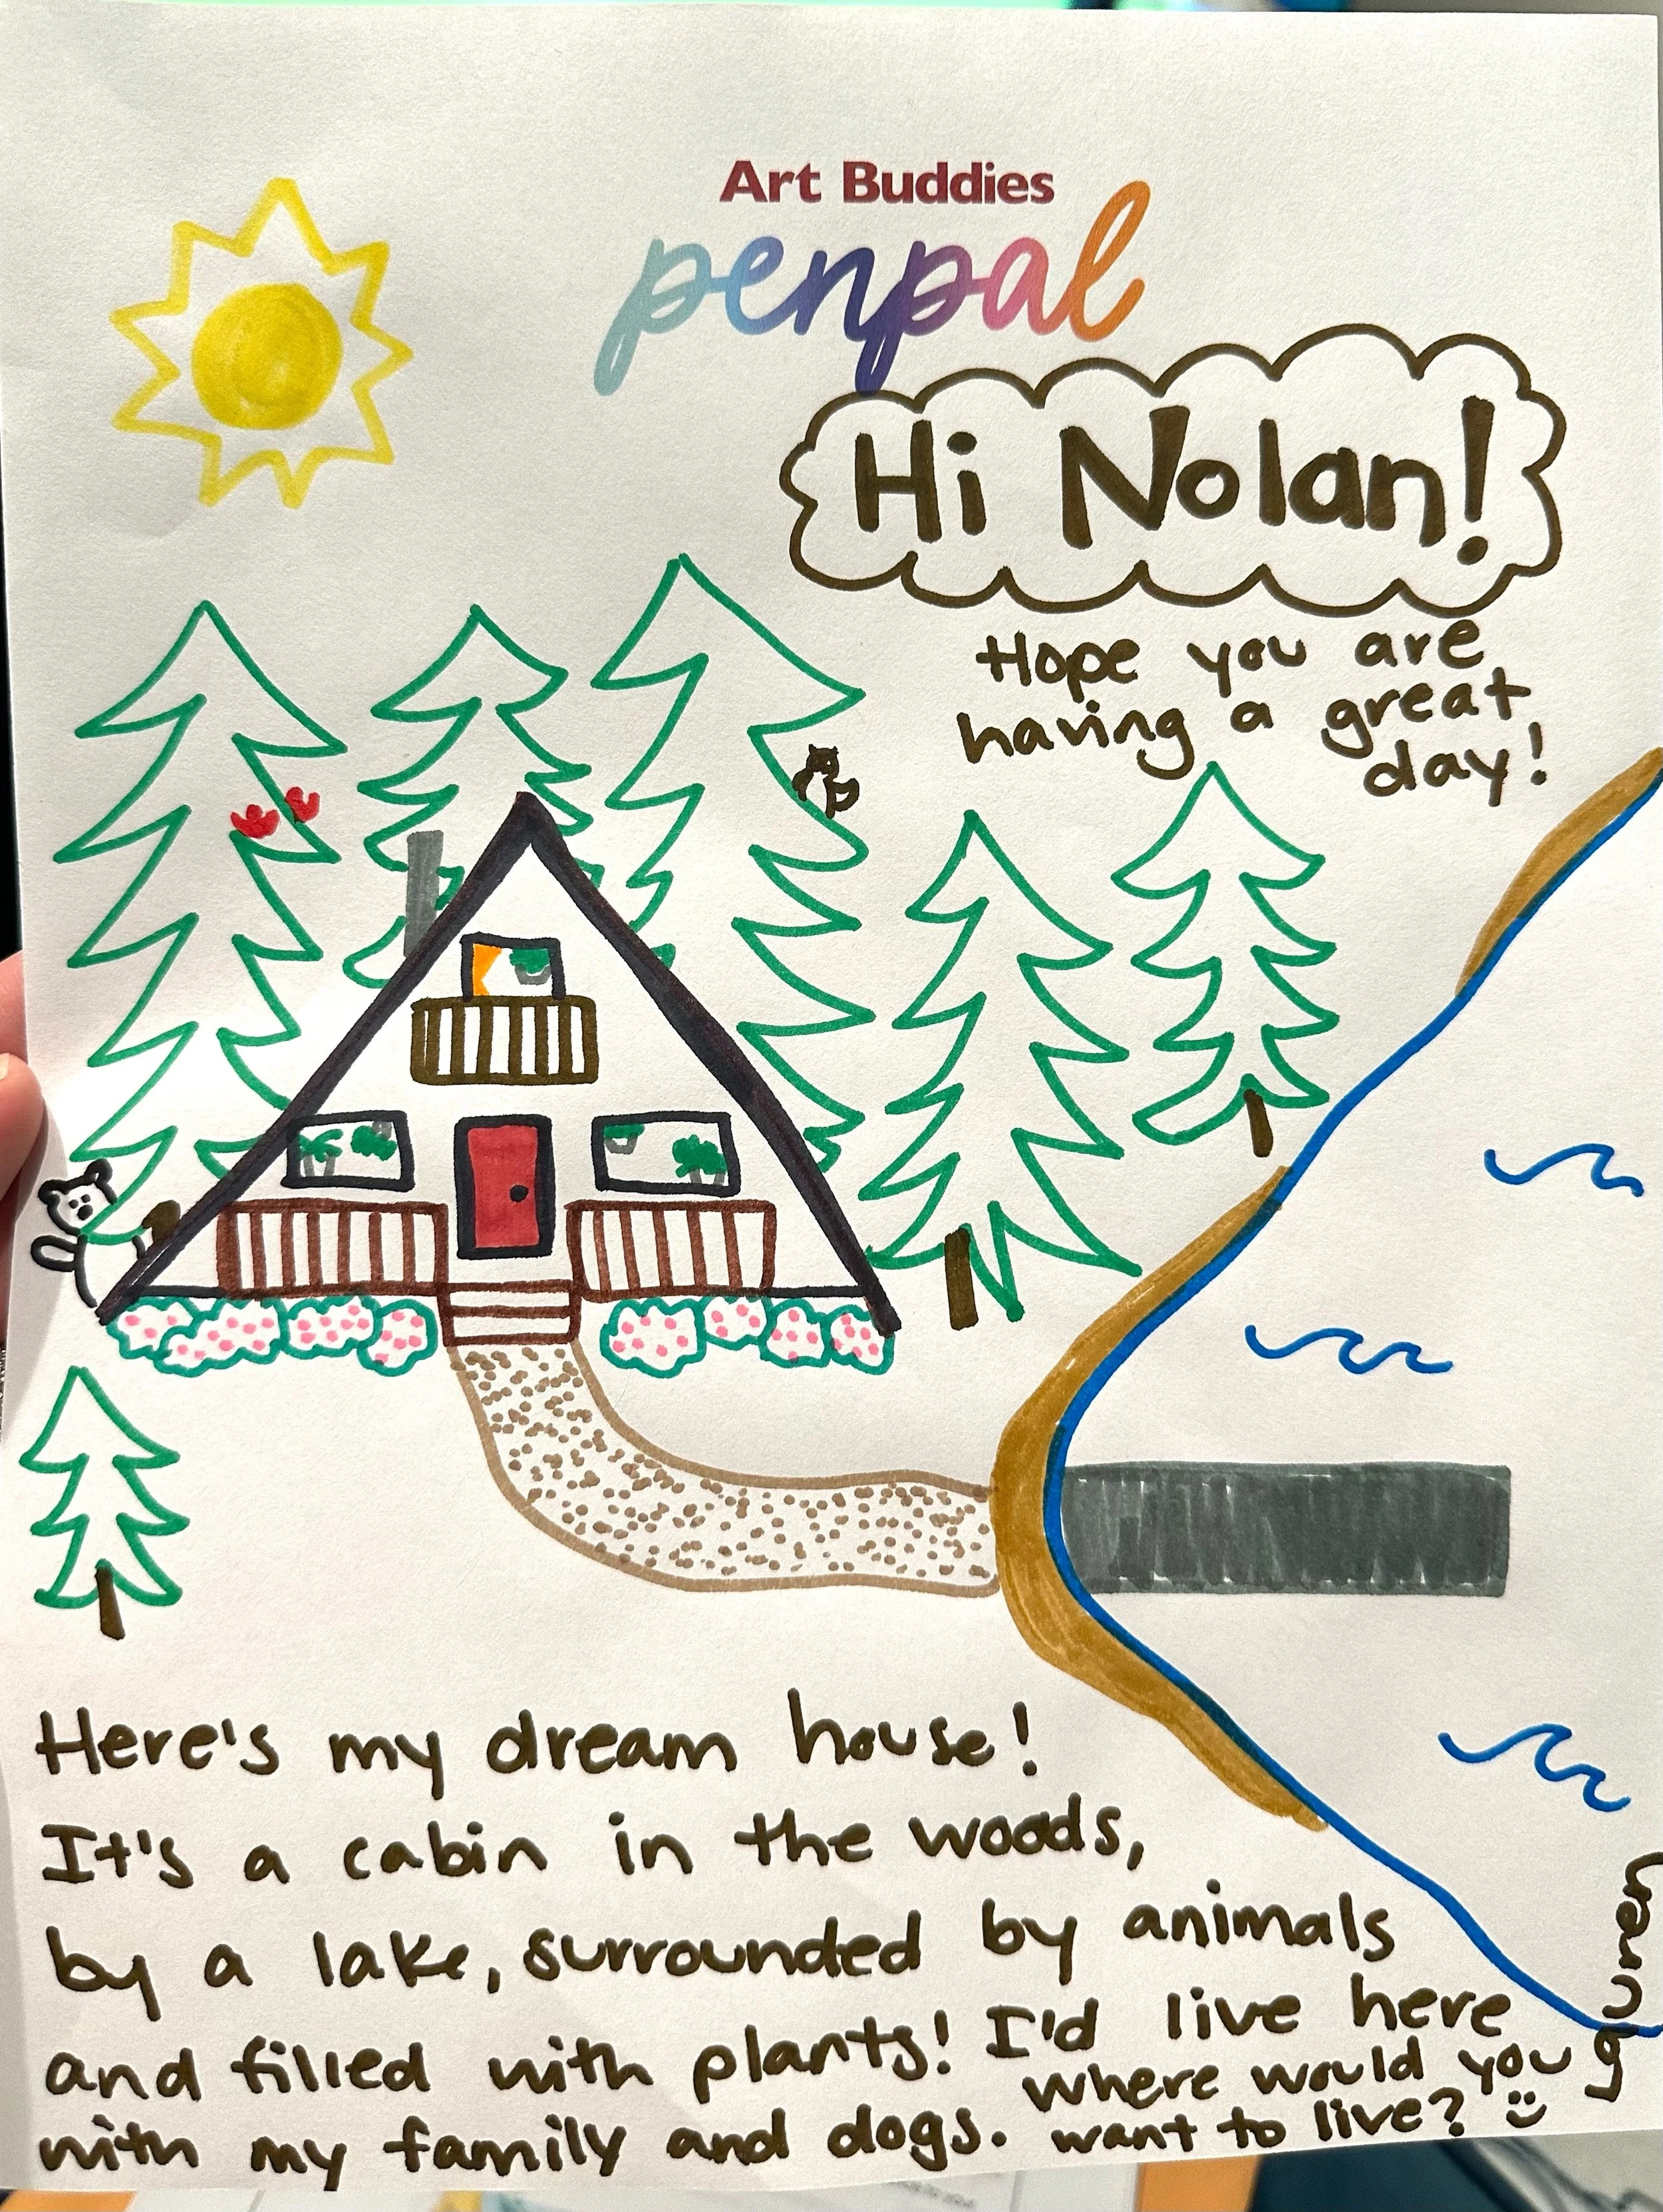 Art Buddies
penpal
Hi Nolan!
Hope you are
having a great
day!
Here's my dream house!
It's a cabin in the woods,
by a lake, surrounded by animals
and filled with plants! I'd live here
with my family and dogs. Where would you
want to live? :)